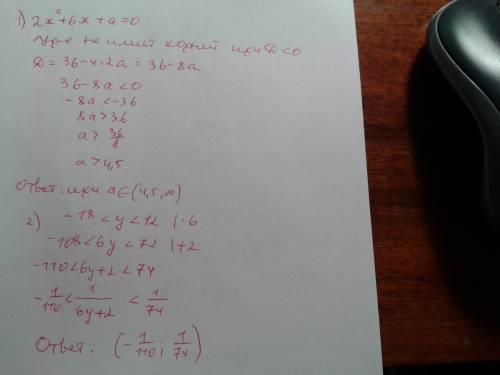 1) 2x²+6x+a=0
ур-е не имеет корней при D<0
D = 36-4·2a = 36-8a
36-8a<0
-8a<-36
8a>36
a> 36/8
a>4,5
Ответ: при a∈(4,5;∞)
2) -18<y<12 |·6
-108<6y<72 |+2
-110<6y+2<74
-1/110 < 1/(6y+2) < 1/74
Ответ: (-1/110; 1/74)